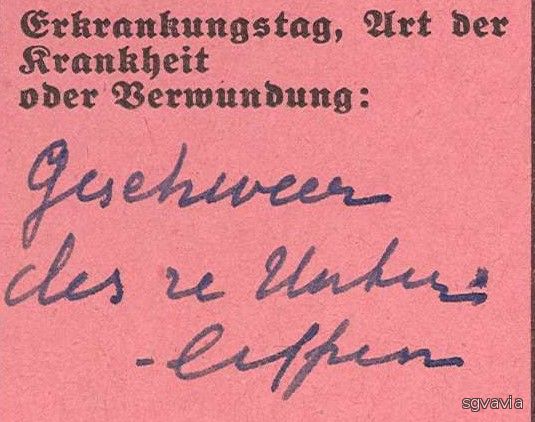 Erkrankungstag, Art der
Krankheit
oder Verwundung:
Geschweer
des re Unter
sgvavia